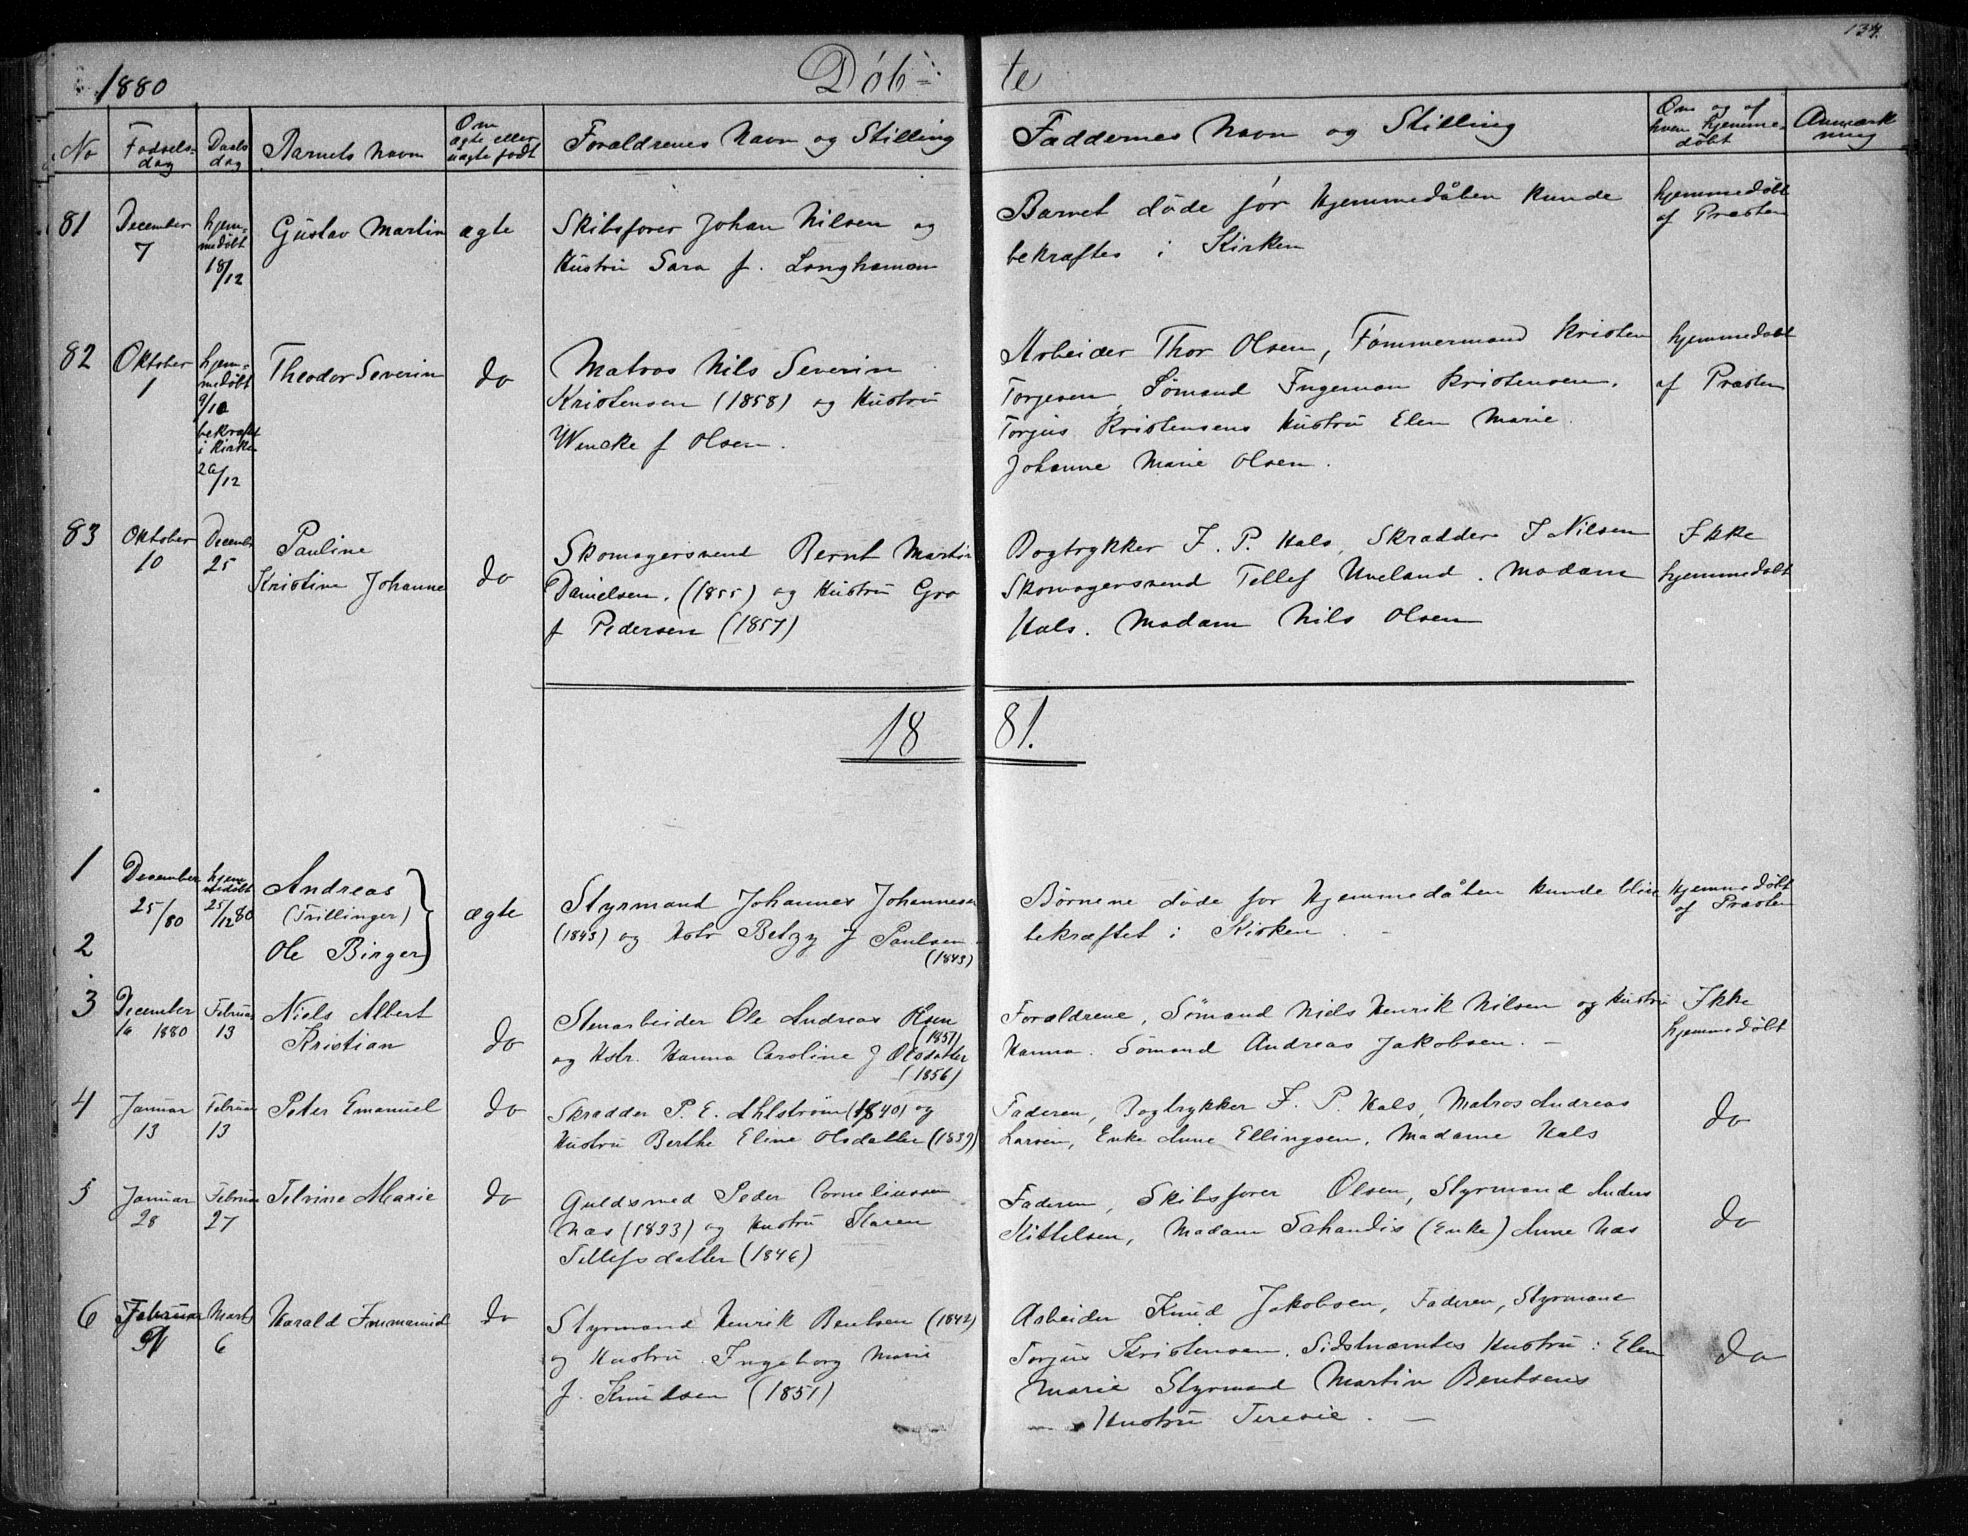 1880
Døb-
te
134.
No
Fødsels-
dag
Daabs
dag
Barnets Navn
Om
ægte eller
uægte født
Forældrenes Navn og Stilling
Faddernes Navn og Stilling
Om og af
hvem hjemme-
døbt
Anmærk
ning
81
December
7
hjem-
medøbt
18/12
Gustav Martin
ægte
Skibsfører Johan Nilsen og
Hustru Sara f. Langhaman
Barnet døde før Hjemmedåben kunde
bekræftes i Kirken
hjemmedøbt
af Præsten
82
Oktober
1
hjem-
medøbt
9/10
bekræft
i Kirke
26/12
Theodor Severin
do
Matros Nils Severin
Kristensen (1858) og Hustru
Wencke f Olsen.
Arbeider Thor Olsen, Tømmermand Kristen
Torjesen, Sømand Ingeman Kristensen.
Torjus Kristensens Hustru Elen Marie.
Johanne Marie Olsen.
hjemmedøbt
af Præsten
83
Oktober
10
Decembr
25
Pauline
Kristine Johanne
do
Skomagersvend Bernt Martin
Danielsen. (1855) og Hustru Gro
f Pedersen (1857)
Bogtrykker F. P. Hals, Skrædder J Nilsen
Skomagersvend Tellef Uveland. Madam
Hals. Madam Nils Olsen
Ikke
hjemmedøbt
18
81.
1
December
25/80
hjem
medøbt
25/12 80
Andreas
(Trillinger)
2
Ole Birger
ægte
Styrmand Johannes Johannesen
(1843) og Hstr Betzy f Paulsen
(1843)
Børnene døde før Hjemmedåben kunde blive
bekræftet i Kirken. -
hjemmedøbt
af Præsten
3
December
16 1880
Februar
13
Niels Albert
Kristian
do
Stenarbeider Ole Andreas Olsen
(1851)
og Hstr. Hanna Caroline f Olsdatter
(1856)
Forældrene, Sømand Niels Henrik Nilsen og Hustru
Hanna. Sømand Andreas Jakobsen. -
Ikke
hjemmedøbt
4
Januar
13
Februar
13
Peter Emanuel
do
Skrædder P. E. Ahlstrøm (1840) og
Hustru Berthe Eline Olsdatter (1839)
Faderen, Bogtrykker F. P. Hals, Matros Andreas
Larsen, Enke Anne Ellingsen, Madame Hals
do
5
Januar
28
Februar
27
Telvine Marie
do
Guldsmed Peder Corneliussen
Næs (1833) og Hustru Karen
Tellefsdatter (1846)
Faderen, Skibsfører Olsen, Styrmand Anders
Kittelsen, Madam Schandis (Enke) Anne Næs
do
6
Februar
9
Marts
6
Harald Emmanuel
do
Styrmand Henrik Bentsen (1842)
og Hustru Ingeborg Marie
f. Knudsen (1851)
Arbeider Knud Jakobsen, Faderen, Styrmand
Torjus Kristensen, Sidstnævntes Hustru: Elen
Marie Styrmand Martin Bentsens
Hustru Teresie. -
do